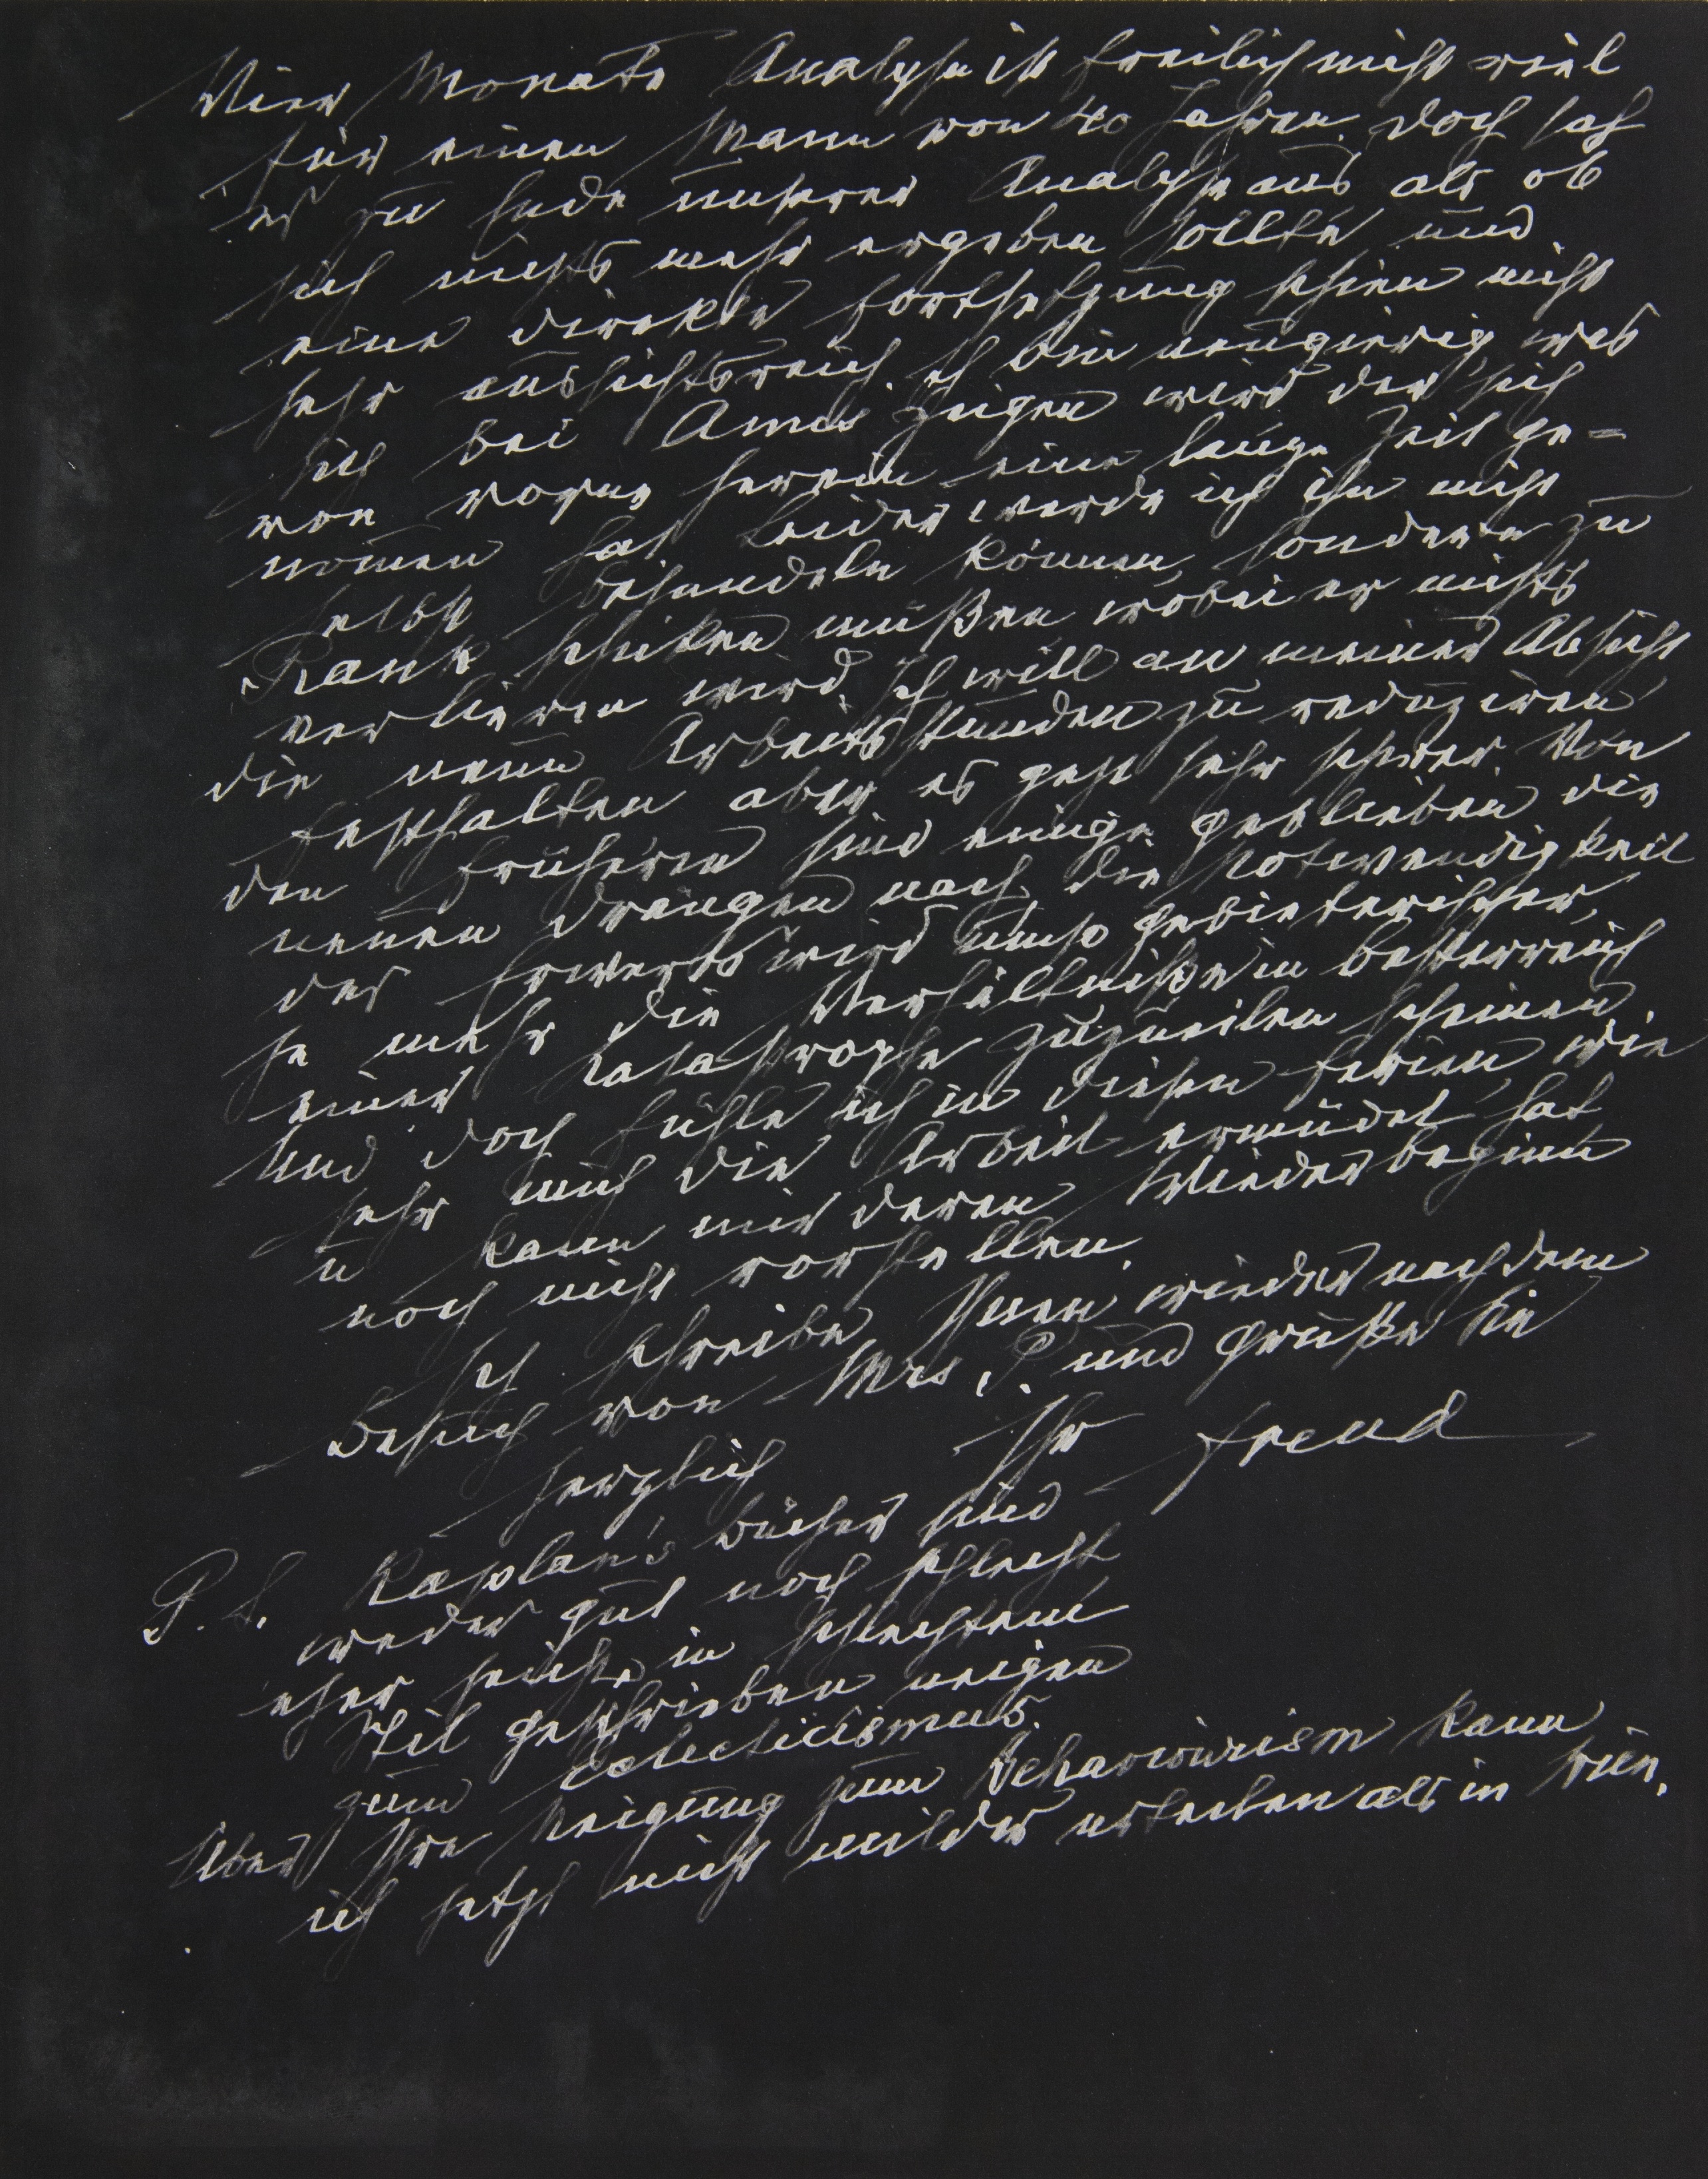 Vier Monate Analyse ist freilich nicht viel
für einen Mann von 40 Jahren. Doch sah
es zu Ende unserer Analyse aus als ob
sich nichts mehr ergeben sollte und
eine direkte Fortsetzung schien nicht
sehr aussichtsreich. Ich bin neugierig, was
sich bei Ames zeigen wird der sich
von vorne herein eine lange Zeit ge=
nom̄en hat. Leider werde ich ihn nicht
selbst behandeln können, sondern zu
Rank schicken müßen wobei er nichts
verlieren wird. Ich will an meiner Absicht
die neun Arbeitsstunden zu reduziren
festhalten aber es geht sehr schwer. Von
den früheren sind einige geblieben die
neuen drängen nach, die Notwendigkeit
des Erwerbs wird umso gebieterischer,
je mehr die Verhältniße in Oesterreich
einer Katastrophe zuzueilen scheinen.
Und doch fühle ich in diesen Ferien, wie
sehr mich die Arbeit ermüdet hat
u kann mir deren Wiederbeginn
noch nicht vorstellen.
Ich schreibe Ihnen wieder nach dem
Besuch von Mrs. P. und grüße Sie
herzlich
Ihr Freud
P. S. Kaplan's Bücher sind
weder gut noch schlecht
eher seicht, in schlechtem
Stil geschrieben neigen
zum Eclecticismus.
Über Ihre Neigung zum Behaviourism kann
ich jetzt nicht milder urteilen als in Wien.